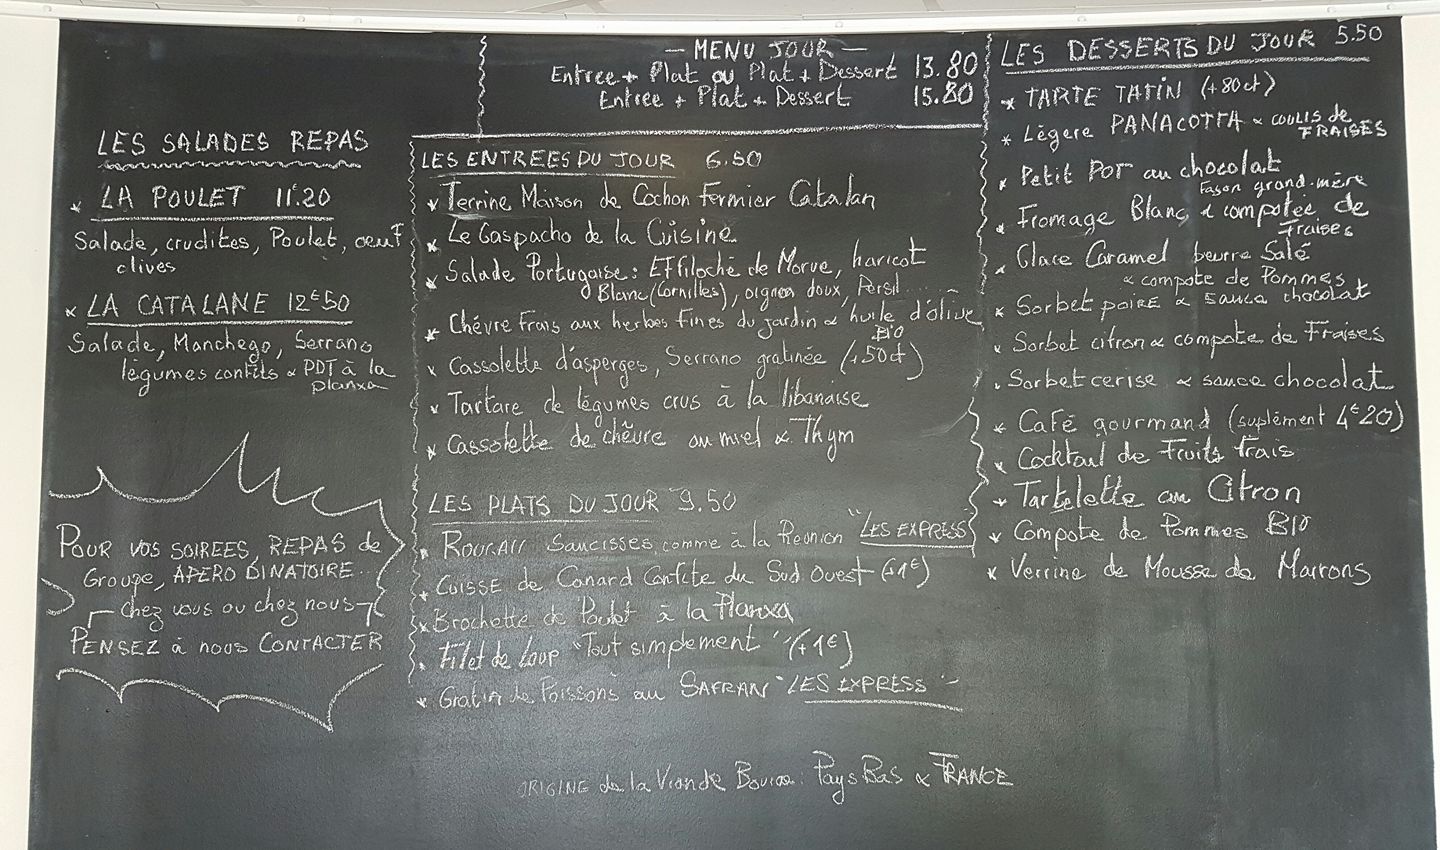 LES SALADES REPAS
* LA POULET 11€20
Salade, crudites, Poulet, oeuf
olives
* LA CATALANE 12€50
Salade, Manchego, Serrano
légumes confits & PDT à la
planxa
POUR VOS SOIREES, REPAS de
Groupe, APERO DINATOIRE...
chez vous ou chez nous
PENSEZ à nous CONTACTER
— MENU JOUR —
Entree + Plat ou Plat + Dessert 13.80
Entree + Plat + Dessert 15.80
LES ENTREES DU JOUR 6.50
* Terrine Maison de Cochon Fermier Catalan
* Le Gaspacho de la Cuisine
* Salade Portugaise: Effiloché de Morue, haricot
Blanc (Cornilles), oignon doux, Persil.....
* Chévre Frais aux herbes fines du jardin & huile d'olive
BIO
* Cassolette d'asperges, Serrano gratinée (+50ct)
* Tartare de légumes crus à la libanaise
* Cassolette de chêvre au miel & Thym
LES PLATS DU JOUR 9.50
* ROUGAIL Saucisses comme à la Reunion "LES EXPRESS"
* CUISSE de Canard Confite du Sud Ouest (+1€)
* Brochette de Poulet à la Planxa
* Filet de Loup "Tout simplement" (+1€)
* Gratin de Poissons au SAFRAN "LES EXPRESS"
ORIGINE de la Viande Bovine: Pays Bas & FRANCE
LES DESSERTS DU JOUR 5.50
* TARTE TATIN (+80ct)
* Légere PANACOTTA & COULIS de
FRAISES
* Petit POT au chocolat
Façon grand-mère
* Fromage Blanc & compotée de
Fraises
* Glace Caramel beurre Salé
& compote de Pommes
* Sorbet poire & sauce chocolat
* Sorbet citron & compote de Fraises
* Sorbet cerise & sauce chocolat
* Café gourmand (suplément 4€20)
* Cocktail de Fruits frais
* Tartelette au Citron
* Compote de Pommes BIO
* Verrine de Mousse de Marrons